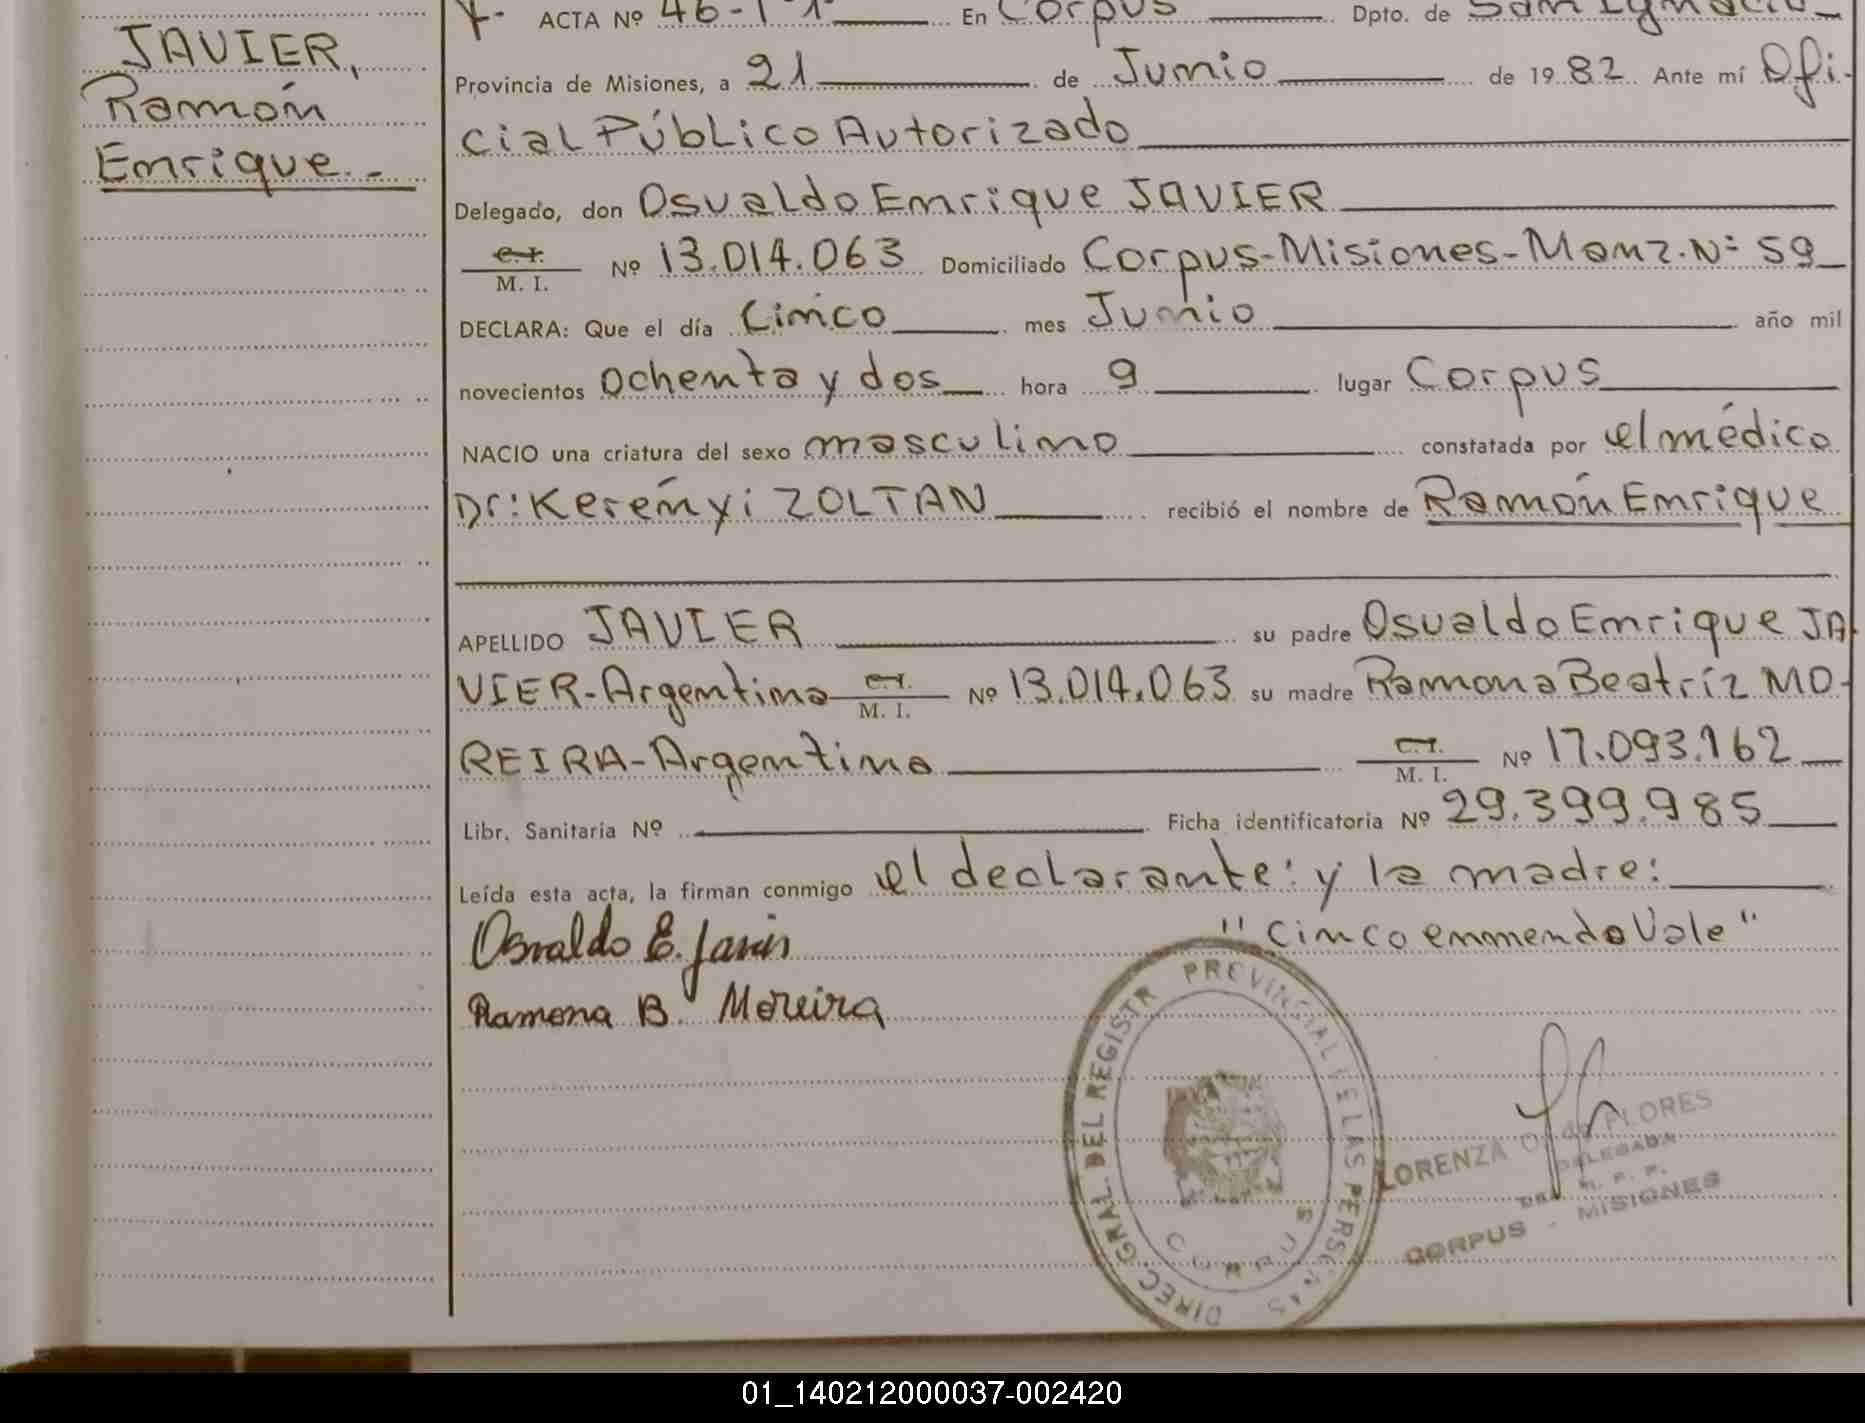 JAVIER,
Ramón
Enrique.-
ACTA Nº 46-T-1- En Corpus Dpto. de San Ignacio
Provincia de Misiones, a 21 de Junio de 1982 Ante mí Ofi-
cial Público Autorizado
Delegado, don Osvaldo Enrique JAVIER
C.I.
M. I. Nº 13.014.063 Domiciliado Corpus-Misiones-Manz.Nº 59
DECLARA: Que el día Cinco mes Junio año mil
novecientos ochenta y dos hora 9 lugar Corpus
NACIO una criatura del sexo masculino constatada por el médico
Dr: Kerényi ZOLTAN recibió el nombre de Ramón Enrique
APELLIDO JAVIER su padre Osvaldo Enrique JA
VIER-Argentino C.I. M. I. Nº 13.014.063 su madre Ramona Beatríz MO-
REIRA-Argentina C.I. M. I. Nº 17.093.162
Libr. Sanitaria Nº Ficha identificatoria Nº 29.399.985
Leída esta acta, la firman conmigo el declarante: y la madre:
Osvaldo E. Javier "Cinco enmendo Vale"
Ramona B. Moreira
DIREC. GRAL. DEL REGISTR PROVINCIAL DE LAS PERSONAS
CORPUS
LORENZA O. de FLORES
DELEGADA
DEL R. P. P.
CORPUS - MISIONES
01_140212000037-002420